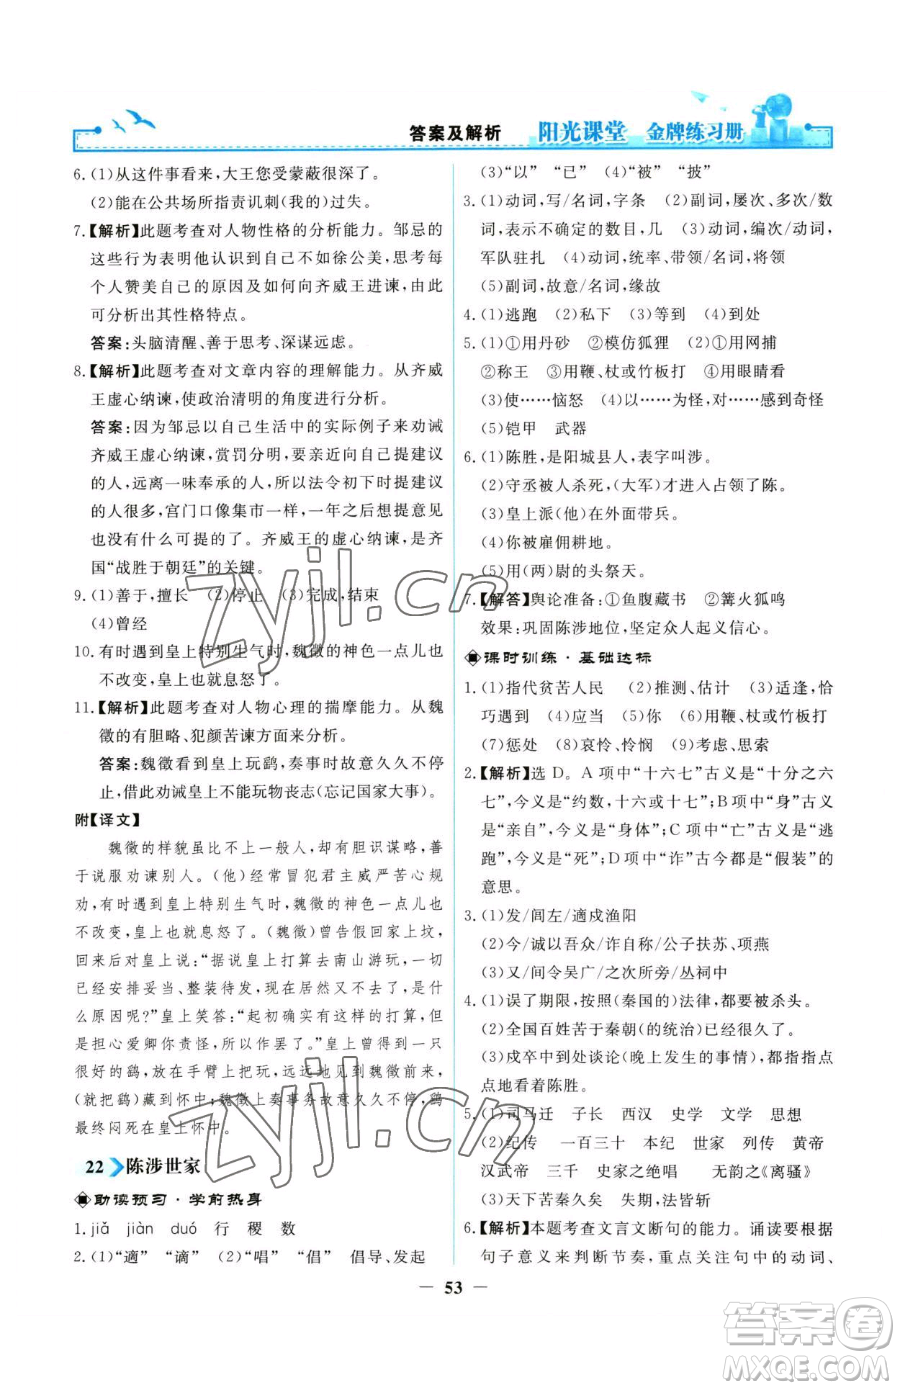 答案及解析 阳光课堂 金牌练习册
6.(1)从这件事看来,大王您受蒙蔽很深了。
(2)能在公共场所指责讥刺(我的)过失。
7.【解析】此题考查对人物性格的分析能力。邹忌的
这些行为表明他认识到自己不如徐公美,思考每
个人赞美自己的原因及如何向齐威王进谏,由此
可分析出其性格特点。
答案:头脑清醒、善于思考、深谋远虑。
8.【解析】此题考查对文章内容的理解能力。从齐威
王虚心纳谏,使政治清明的角度进行分析。
答案:因为邹忌以自己生活中的实际例子来劝诫
齐威王虚心纳谏,赏罚分明,要亲近向自己提建议
的人,远离一味奉承的人,所以法令初下时提建议
的人很多,宫门口像集市一样,一年之后想提意见
也没有什么可提的了。齐威王的虚心纳谏,是齐
国“战胜于朝廷”的关键。
9.(1)善于,擅长 (2)停止 (3)完成,结束
(4)曾经
10.有时遇到皇上特别生气时,魏徵的神色一点儿也
不改变,皇上也就息怒了。
11.【解析】此题考查对人物心理的揣摩能力。从魏
徵的有胆略、犯颜苦谏方面来分析。
答案:魏徵看到皇上玩鹞,奏事时故意久久不停
止,借此劝诫皇上不能玩物丧志(忘记国家大事)。
附【译文】
魏徵的样貌虽比不上一般人,却有胆识谋略,善
于说服劝谏别人。(他)经常冒犯君主威严苦心规
劝,有时遇到皇上特别生气时,魏徵的神色一点儿也
不改变,皇上也就息怒了。(魏徵)曾告假回家上坟,
回来后对皇上说:“据说皇上打算去南山游玩,一切
已经安排妥当、整装待发,但现在居然又不去了,是
什么原因呢?”皇上笑答:“起初确实有这样的打算,但
是担心爱卿你责怪,所以作罢了。”皇上曾经得到一只
上好的鹞,放在手臂上把玩,远远看到魏徵前来,
(就把鹞)藏到怀中。魏徵上奏事务故意久久不停,鹞
最终闷死在皇上怀中。
22 陈涉世家
助读预习·学前热身
1.jiǎ jiàn duó 行 稷 数
2.(1)“適” “谪” (2)“唱” “倡” 倡导、发起
(3)“以” “已” (4)“被” “披”
3.(1)动词,写/名词,字条 (2)副词,屡次、多次/数
词,表示不确定的数目,几 (3)动词,编次/动词,
军队驻扎 (4)动词,统率、带领/名词,将领
(5)副词,故意/名词,缘故
4.(1)逃跑 (2)私下 (3)等到 (4)到处
5.(1)①用丹砂 ②模仿狐狸 (2)①用网捕
②称王 ③用鞭、杖或竹板打 ④用眼睛看
(3)使……恼怒 (4)以……为怪,对……感到奇怪
(5)铠甲 武器
6.(1)陈胜,是阳城县人,表字叫涉。
(2)守丞被人杀死,(大军)才进入占领了陈。
(3)皇上派(他)在外面带兵。
(4)你被雇佣耕地。
(5)用(两)尉的头祭天。
7.【解答】舆论准备:①鱼腹藏书 ②篝火狐鸣
效果:巩固陈涉地位,坚定众人起义信心。
课时训练·基础达标
1.(1)指代贫苦人民 (2)推测、估计 (3)适逢,恰
巧遇到 (4)应当 (5)你 (6)用鞭、杖或竹板打
(7)惩处 (8)哀怜、怜悯 (9)考虑、思索
2.【解析】选 D。A 项中“十六七”古义是“十分之六
七”,今义是“约数,十六或十七”;B 项中“身”古义
是“亲自”,今义是“身体”;C 项中“亡”古义是“逃
跑”,今义是“死”;D 项中“诈”古今都是“假装”的
意思。
3.(1)发/闾左/適戍渔阳
(2)今/诚以吾众/诈自称/公子扶苏、项燕
(3)又/间令吴广/之次所旁/丛祠中
4.(1)误了期限,按照(秦国的)法律,都要被杀头。
(2)全国百姓苦于秦朝(的统治)已经很久了。
(3)戍卒中到处谈论(晚上发生的事情),都指指点
点地看着陈胜。
5.(1)司马迁 子长 西汉 史学 文学 思想
(2)纪传 一百三十 本纪 世家 列传 黄帝
汉武帝 三千 史家之绝唱 无韵之《离骚》
(3)天下苦秦久矣 失期,法皆斩
6.【解析】本题考查文言文断句的能力。诵读要根据
句子意义来判断节奏,重点关注句中的动词、
53
zyjl.cn
答案圈
MXQE.COM